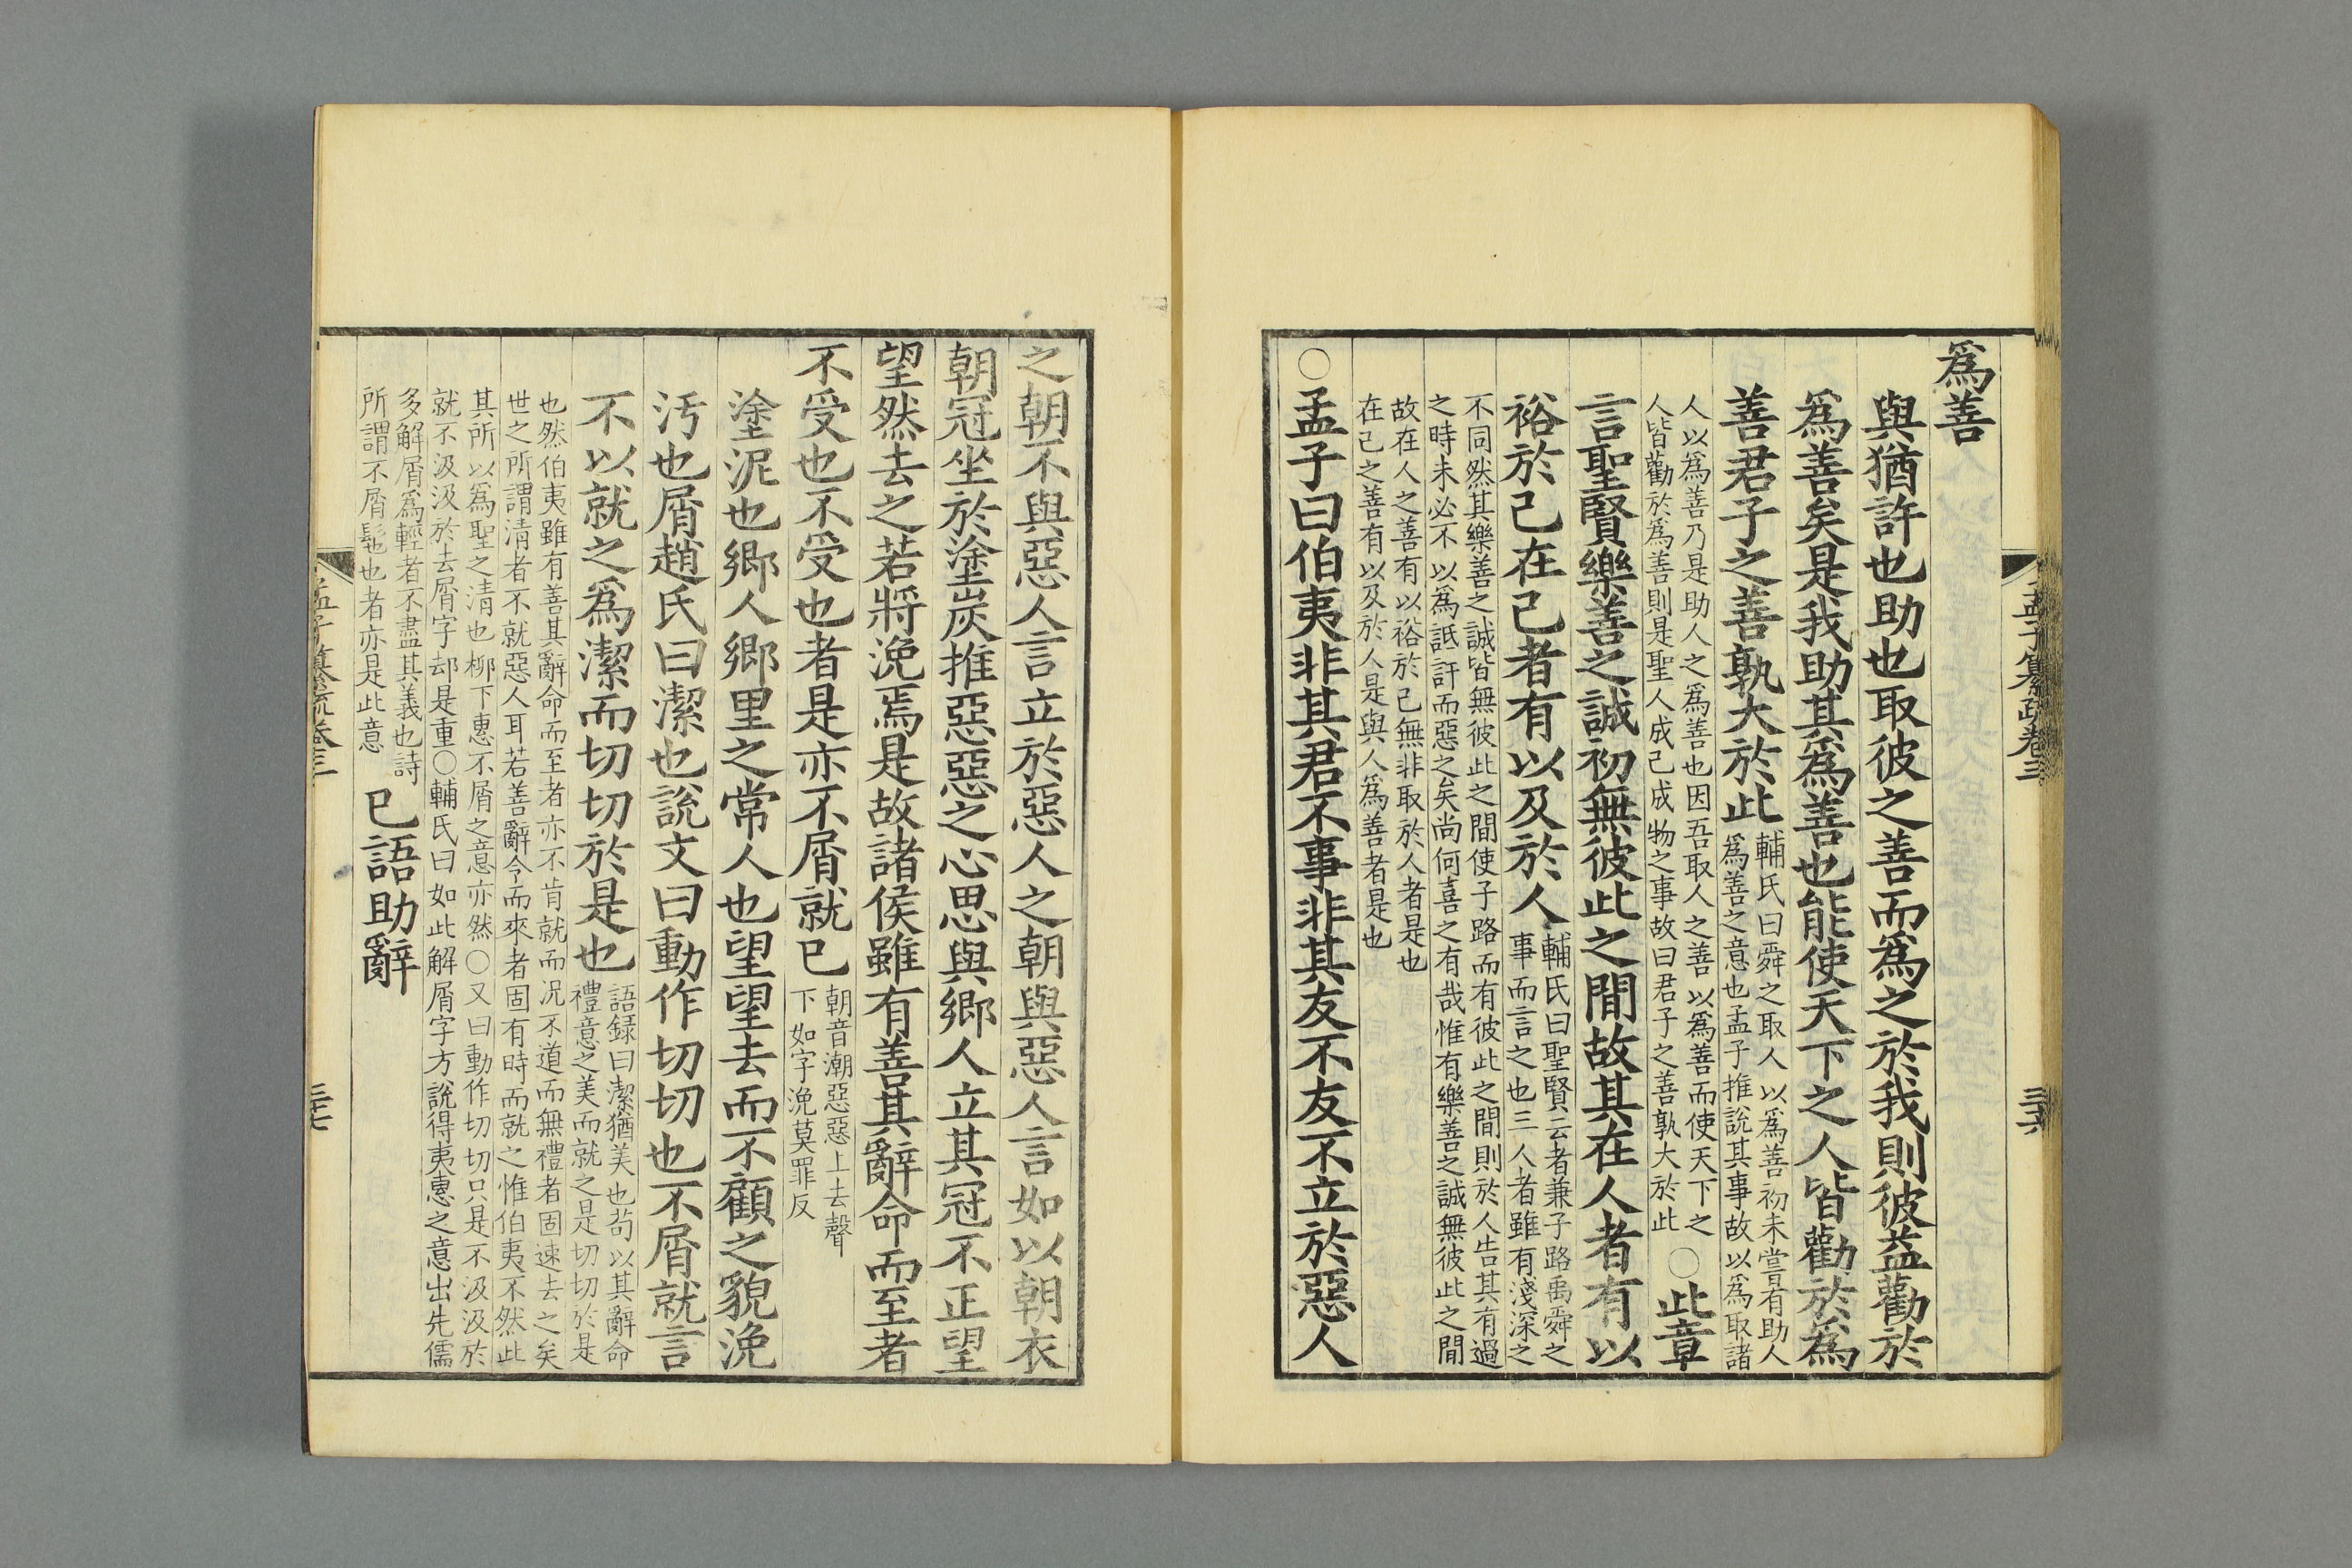 孟子纂疏卷三
三十六
爲善
與猶許也助也取彼之善而爲之於我則彼益勸於
爲善矣是我助其爲善也能使天下之人皆勸於爲
善君子之善孰大於此
輔氏曰舜之取人以爲善初未嘗有助人
爲善之意也孟子推說其事故以爲取諸
人以爲善乃是助人之爲善也因吾取人之善以爲善而使天下之
人皆勸於爲善則是聖人成己成物之事故曰君子之善孰大於此
○此章
言聖賢樂善之誠初無彼此之間故其在人者有以
裕於己在己者有以及於人
輔氏曰聖賢云者兼子路禹舜之
事而言之也三人者雖有淺深之
不同然其樂善之誠皆無彼此之間使子路而有彼此之間則於人告其有過
之時未必不以爲詆訐而惡之矣尚何喜之有哉惟有樂善之誠無彼此之間
故在人之善有以裕於己無非取於人者是也
在己之善有以及於人是與人爲善者是也
○孟子曰伯夷非其君不事非其友不友不立於惡人
之朝不與惡人言立於惡人之朝與惡人言如以朝衣
朝冠坐於塗炭推惡惡之心思與鄉人立其冠不正望
望然去之若將浼焉是故諸侯雖有善其辭命而至者
不受也不受也者是亦不屑就已
朝音潮惡惡上去聲
下如字浼莫罪反
塗泥也鄉人鄉里之常人也望望去而不顧之貌浼
汚也屑趙氏曰潔也說文曰動作切切也不屑就言
不以就之爲潔而切切於是也
語録曰潔猶美也苟以其辭命
禮意之美而就之是切切於是
也然伯夷雖有善其辭命而至者亦不肯就而况不道而無禮者固速去之矣
世之所謂清者不就惡人耳若善辭令而來者固有時而就之惟伯夷不然此
其所以爲聖之清也柳下惠不屑之意亦然○又曰動作切切只是不汲汲於
就不汲汲於去屑字却是重○輔氏曰如此解屑字方說得夷惠之意出先儒
多解屑爲輕者不盡其義也詩
所謂不屑髢也者亦是此意
已語助辭
孟子纂疏卷三
三十七